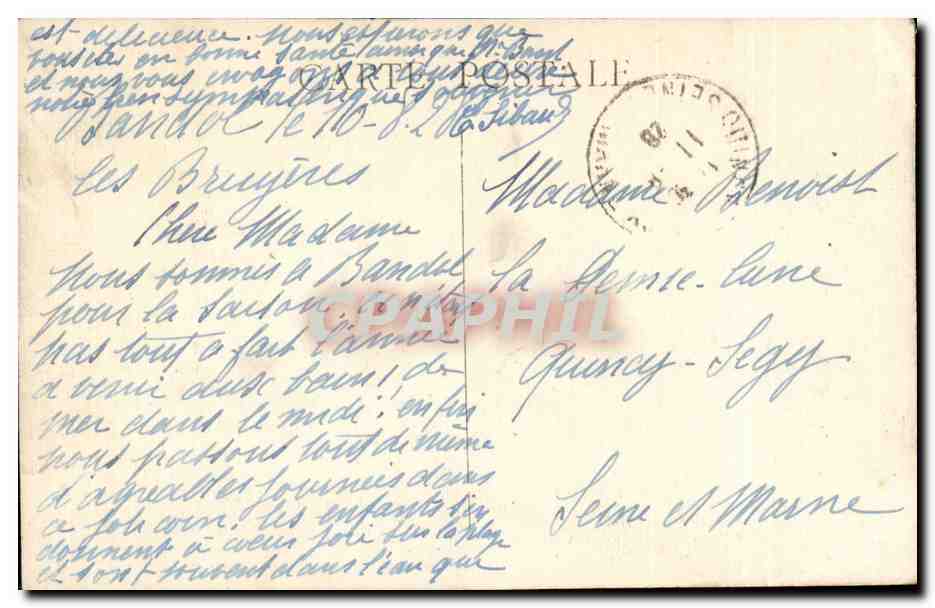 CARTE POSTALE
Bandol le 10-8.28
Les Bruyères
Chère Madame
Nous sommes à Bandol
pour la saison. ce n'est
pas tout à fait l'année
à venir aux bains de
mer dans le midi! enfin
nous passons tout de même
d'agréables journées dans
ce joli coin. les enfants s'en
donnent à coeur joie sur la plage
et sont souvent dans l'eau que
est délicieuse. Nous espérons que
vous êtes en bonne santé ainsi que Mr Benoist
et nous vous envoyons à tous deux
notre bien sympathique souvenir
Madame Benoist
La Demie-Lune
Quincy-Segy
Seine et Marne
QUINCY SEGY
11
28
CPAPHIL